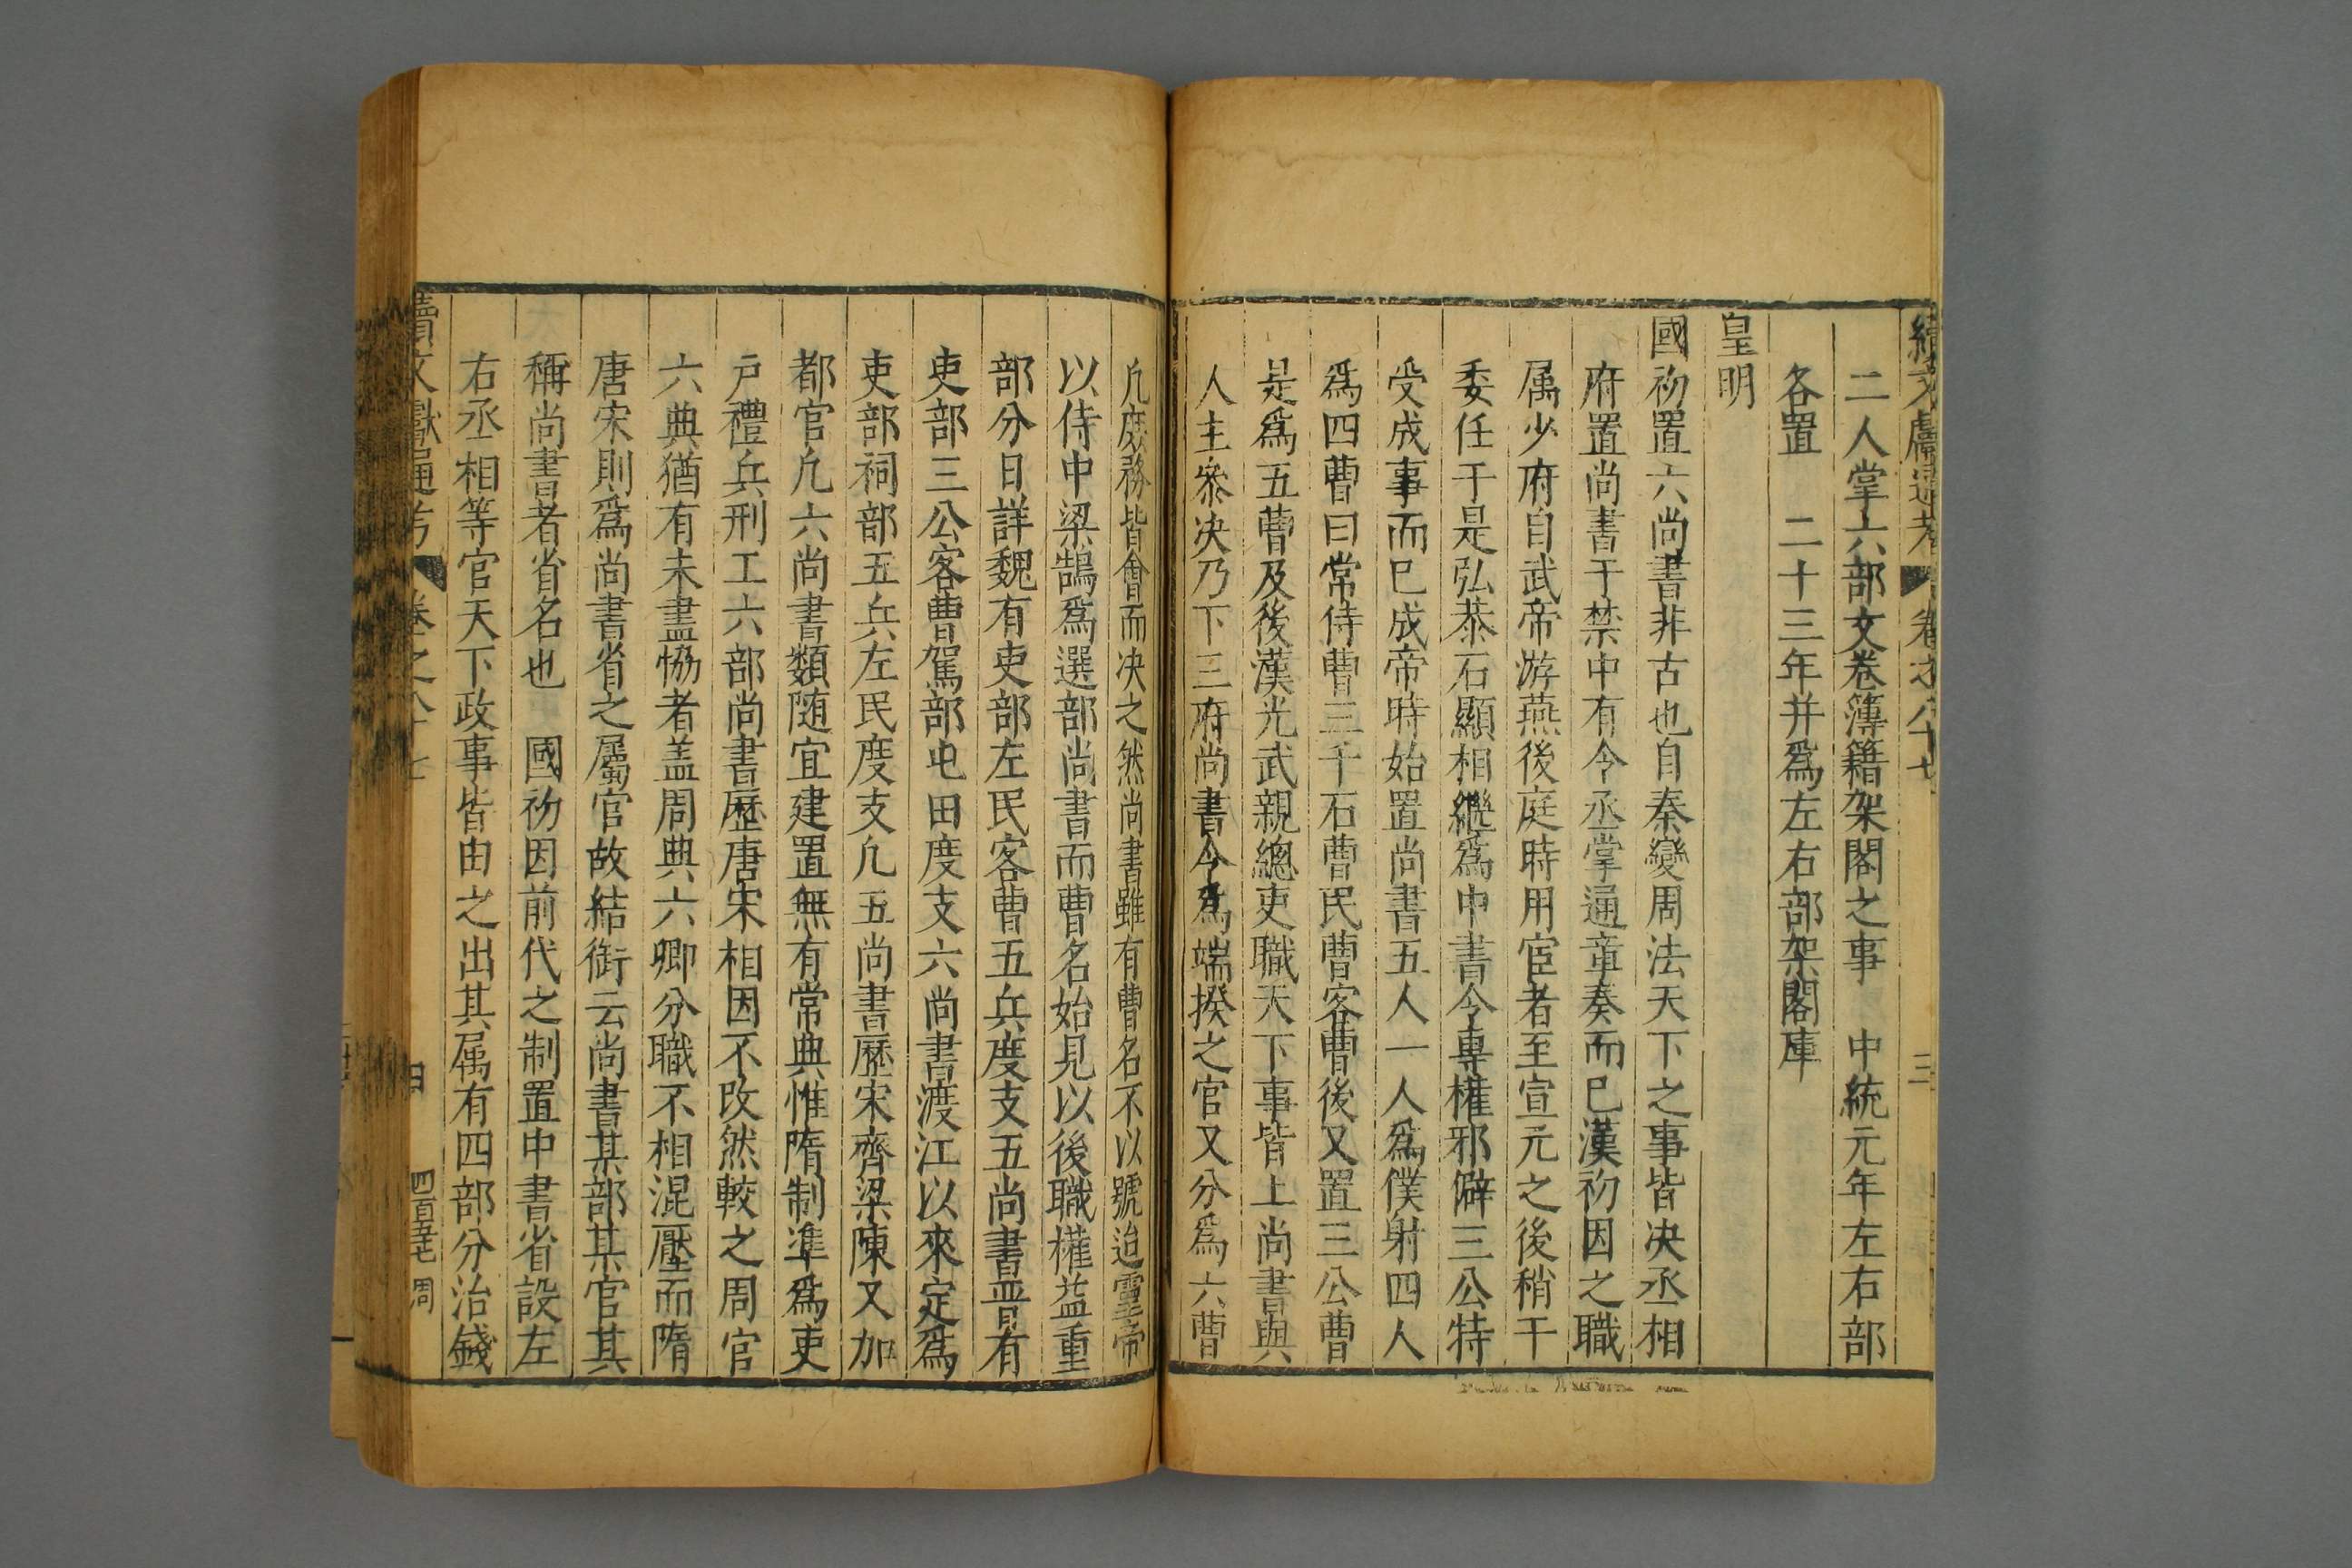 續文獻通考 卷之八十七 三
二人掌六部文卷簿籍架閣之事 中統元年左右部
各置 二十三年并爲左右部架閣庫
皇明
國初置六尚書非古也自秦變周法天下之事皆决丞相
府置尚書于禁中有令丞掌通章奏而已漢初因之職
属少府自武帝游燕後庭時用宦者至宣元之後稍干
委任于是弘恭石顯相繼爲中書令專權邪僻三公特
受成事而已成帝時始置尚書五人一人爲僕射四人
爲四曹曰常侍曹二千石曹民曹客曹後又置三公曹
是爲五曹及後漢光武親總吏職天下事皆上尚書與
人主叅决乃下三府尚書令爲端揆之官又分爲六曹
凢庶務皆會而决之然尚書雖有曹名不以號迨靈帝
以侍中梁鵠爲選部尚書而曹名始見以後職權益重
部分日詳魏有吏部左民客曹五兵度支五尚書晋有
吏部三公客曹駕部屯田度支六尚書渡江以來定爲
吏部祠部五兵左民度支凢五尚書歷宋齊梁陳又加
都官凢六尚書類随宜建置無有常典惟隋制凖爲吏
戸禮兵刑工六部尚書歷唐宋相因不改然較之周官
六典猶有未盡恊者盖周典六卿分職不相混壓而隋
唐宋則爲尚書省之屬官故結銜云尚書某部某官其
稱尚書者省名也 國初因前代之制置中書省設左
右丞相等官天下政事皆由之出其属有四部分治錢
續文獻通考 卷之八十七 四 周